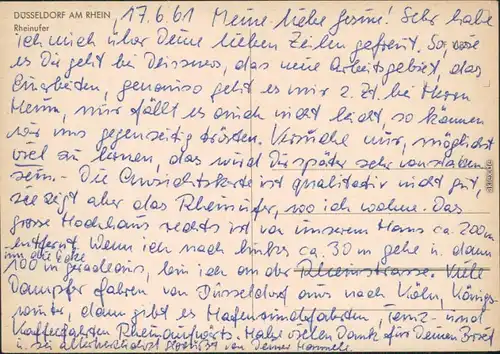 DÜSSELDORF AM RHEIN
Rheinufer
17.6.61 Meine liebe Gesine! Sehr habe
ich mich über Deine lieben Zeilen gefreut. So, wie
es Dir geht bei Deissners, das neue Arbeitsgebiet, das
Einarbeiten, genauso geht es mir z. Zt. bei Herrn
nur fällt es auch nicht leicht, so können
wir uns gegenseitig trösten. Versuche nur, möglichst
viel zu lernen, das wird Dir später sehr
sein. - Die Ansichtskarte ist qualitativ nicht gut,
sie zeigt aber das Rheinufer, wo ich wohne. Das
grosse Hochhaus rechts ist von unserem Haus ca. 200m
entfernt. Wenn ich nach links ca. 30 m gehe u. dann
um die Ecke
100 m geradeaus, bin ich an der Rheinstrasse. Viele
Dampfer fahren von Düsseldorf aus nach Köln, Königs-
winter, dann gibt es Hafenrundfahrten, Tanz- und
Kaffeefahrten Rheinaufwärts. Habe vielen Dank für Deinen Brief
u. sei allerherzlichst gegrüßt von Deiner Hannele